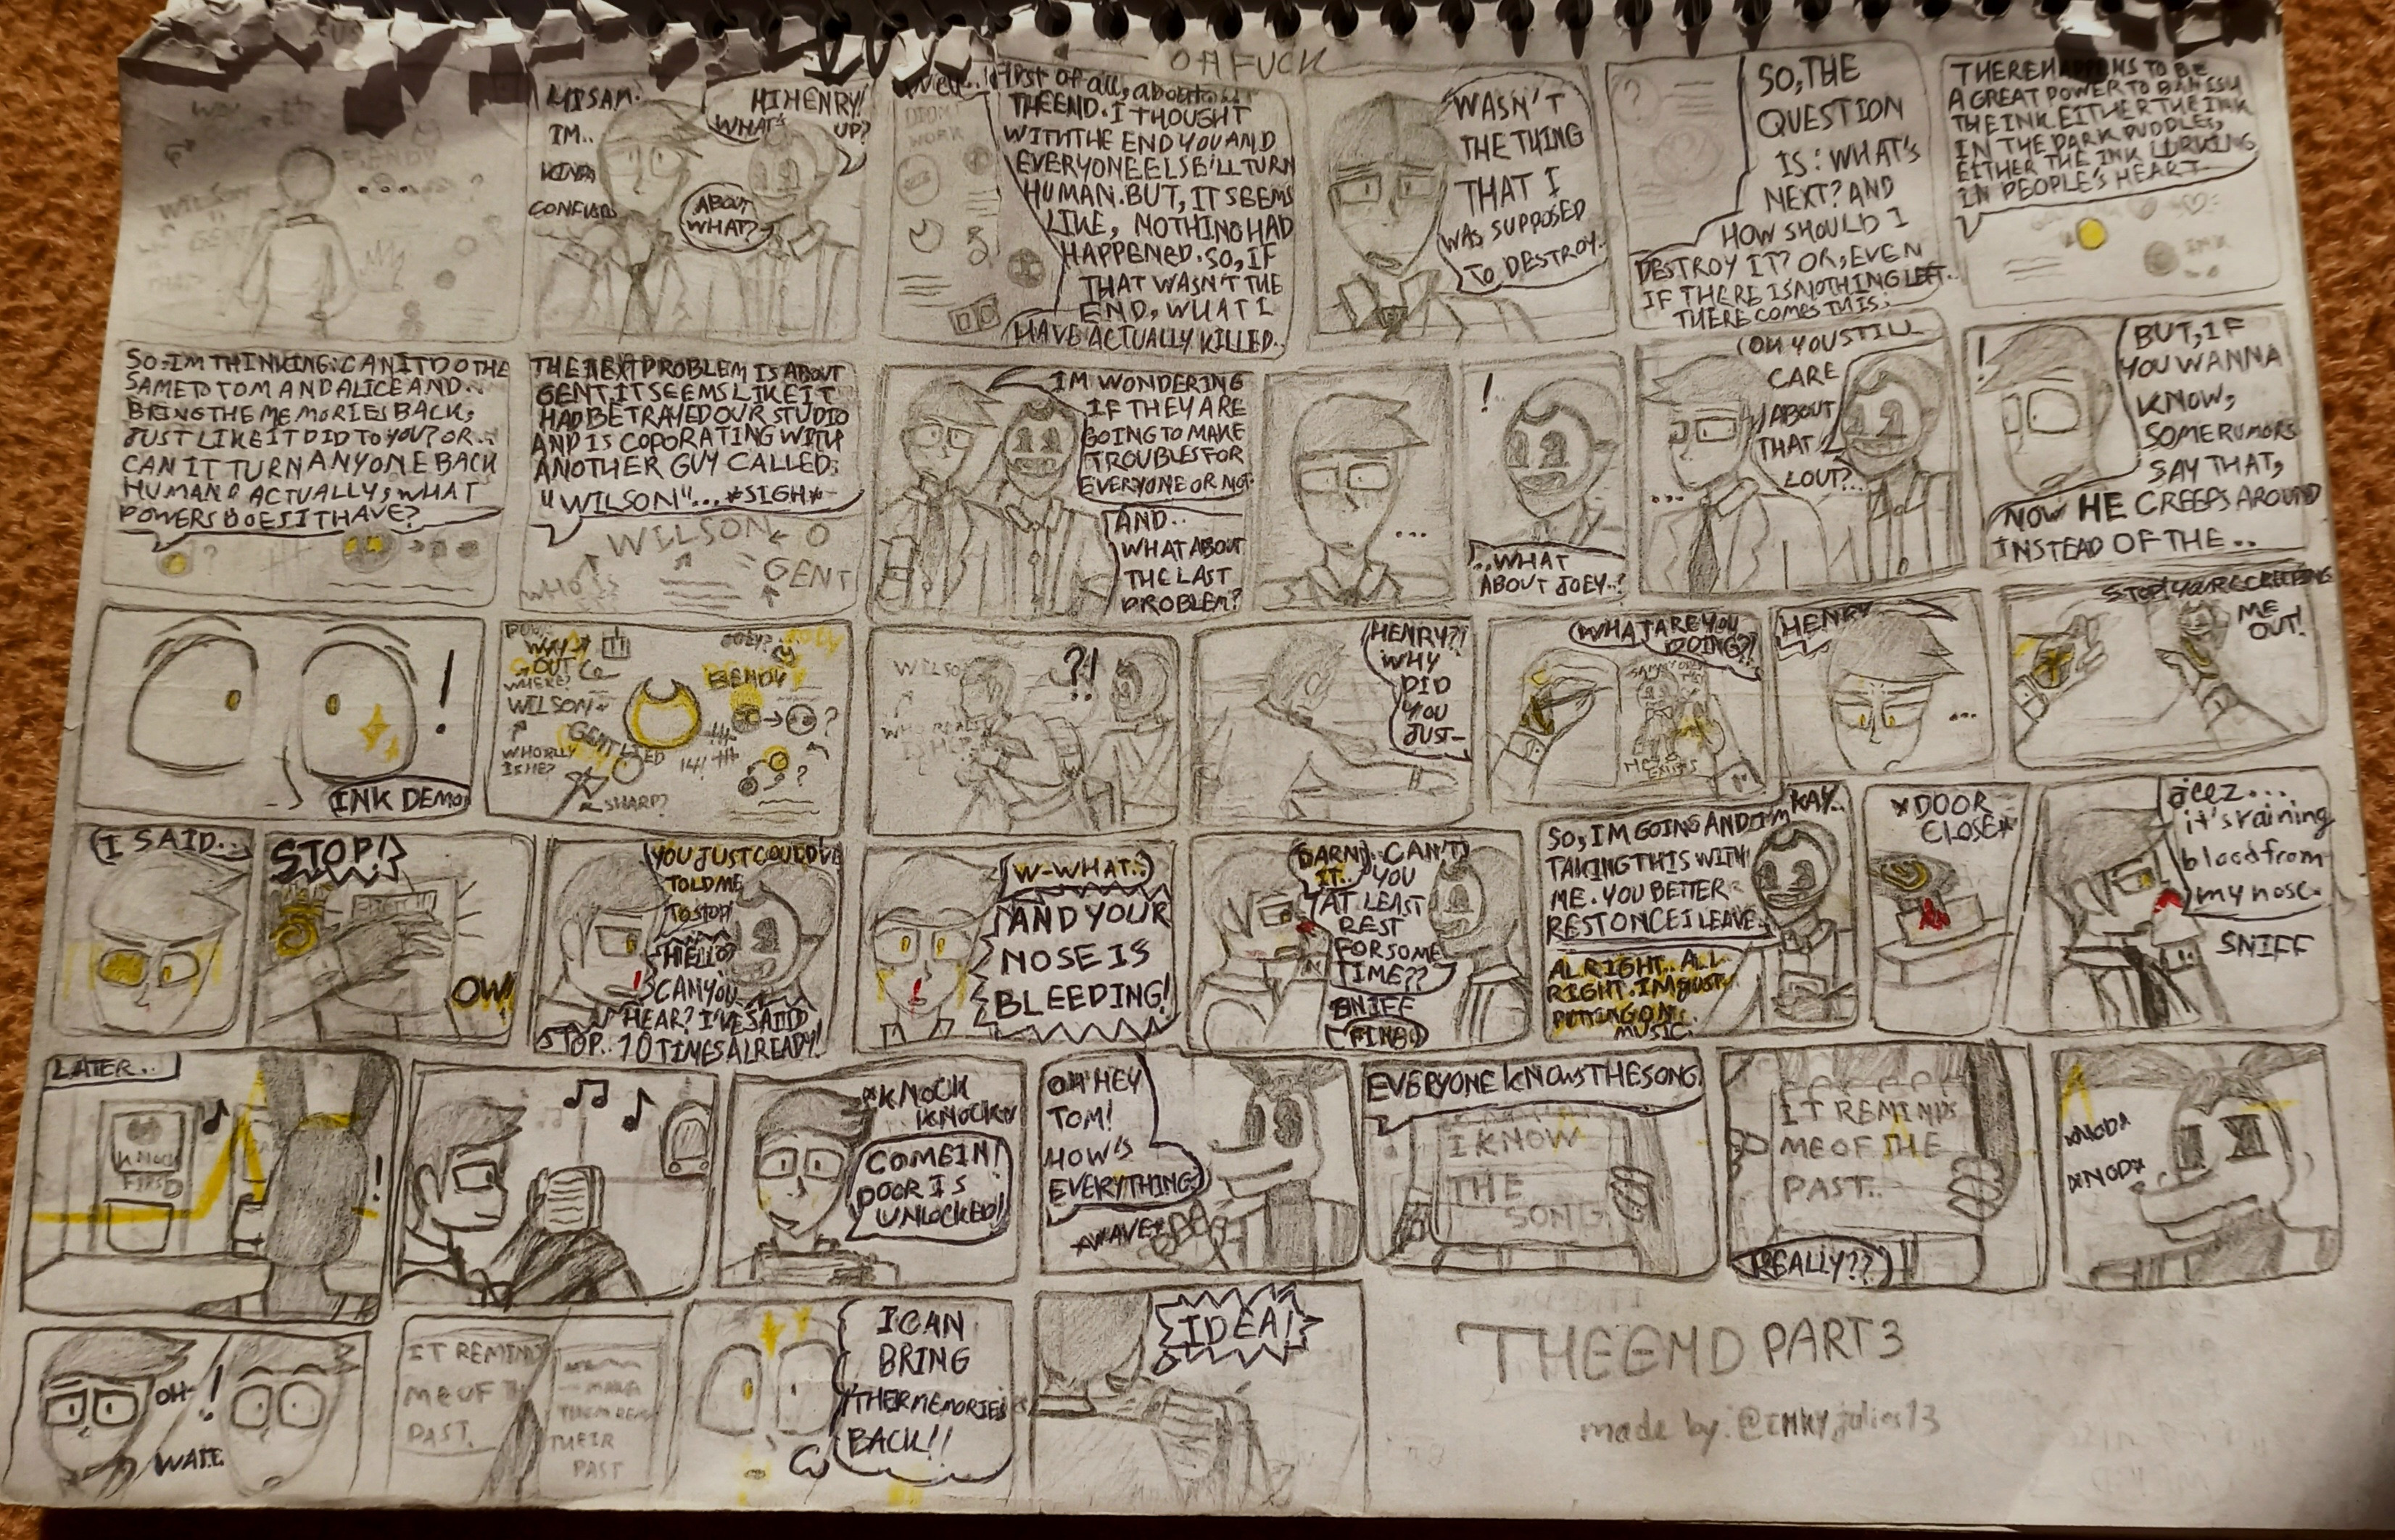 OH FUCK
WILSON
GENT
BENDY
HI SAM.
IM..
KINDA
CONFUSED
HI HENRY!
WHAT'S UP?
ABOUT
WHAT?
DIDN'T
WORK
Well.. First of all, about..
THE END. I THOUGHT
WITH THE END YOU AND
EVERYONE ELSE'LL TURN
HUMAN. BUT, IT SEEMS
LIKE, NOTHING HAD
HAPPENED. SO, IF
THAT WASN'T THE
END, WHAT I
HAVE ACTUALLY KILLED..
WASN'T
THE THING
THAT I
WAS SUPPOSED
TO DESTROY..
SO, THE
QUESTION
IS: WHAT'S
NEXT? AND
HOW SHOULD I
DESTROY IT? OR, EVEN
IF THERE IS NOTHING LEFT..
THERE COMES THIS:
THERE HAPPENS TO BE
A GREAT POWER TO BANISH
THE INK. EITHER THE INK
IN THE DARK PUDDLES,
EITHER THE INK LURKING
IN PEOPLE'S HEART..
INK
SO, IM THINKING: CAN IT DO THE
SAME TO TOM AND ALICE AND..
BRING THE MEMORIES BACK,
JUST LIKE IT DID TO YOU? OR..
CAN IT TURN ANYONE BACK
HUMAN? ACTUALLY, WHAT
POWERS DOES IT HAVE?
?
THE NEXT PROBLEM IS ABOUT
GENT. IT SEEMS LIKE IT
HAD BETRAYED OUR STUDIO
AND IS COPORATING WITH
ANOTHER GUY CALLED:
"WILSON"... *SIGH*
WILSON
WHO IS
GENT
IM WONDERING
IF THEY ARE
GOING TO MAKE
TROUBLES FOR
EVERYONE OR NOT.
AND..
WHAT ABOUT
THE LAST
PROBLEM?
...
!
..WHAT
ABOUT JOEY..?
OH YOU STILL
CARE
ABOUT
THAT
LOUT?..
...
!
BUT, IF
YOU WANNA
KNOW,
SOME RUMORS
SAY THAT,
NOW HE CREEPS AROUND
INSTEAD OF THE..
!
INK DEMO
WAY
OUT
WHERE?
WILSON
WHO REALLY
IS HE?
GENT LIED
SHARP?
JOEY?
BENDY
?
414!
?
WILSON
WHO REALLY
IS HE?
?!
HENRY?!
WHY
DID
YOU
JUST-
WHAT ARE YOU
DOING?!
HE
EXISTS
HENRY
...
STOP! YOU'RE CREEPING
ME
OUT!
I SAID..
STOP!
OW!
YOU JUST COULD'VE
TOLD ME
TO STOP
HELLO?
CAN YOU
HEAR? I'VE SAID
STOP.. 10 TIMES ALREADY!
W-WHAT..
AND YOUR
NOSE IS
BLEEDING!
DARN
IT..
CAN'T
YOU
AT LEAST
REST
FOR SOME
TIME??
SNIFF
FINE
SO, IM GOING AND IM
TAKING THIS WITH
ME. YOU BETTER
REST ONCE I LEAVE.
KAY..
ALRIGHT.. ALL
RIGHT. IM JUST
PUTTING ON..
MUSIC.
*DOOR
CLOSE*
jeez...
it's raining
blood from
my nose.
SNIFF
LATER..
KNOCK
FIRST
!
*KNOCK
KNOCK*
COME IN!
DOOR IS
UNLOCKED!
OH HEY
TOM!
HOW'S
EVERYTHING?
*WAVE*
EVERYONE KNOWS THE SONG.
I KNOW
THE
SONG
IT REMINDS
ME OF THE
PAST..
REALLY??
*NOD*
*NOD*
OH-
!
WAIT.
IT REMINDS
ME OF THE
PAST.
MAKE
THEM
THEIR
PAST
I CAN
BRING
THER MEMORIES
BACK!!
IDEA!
THE END PART 3
made by: @inkyjulies13